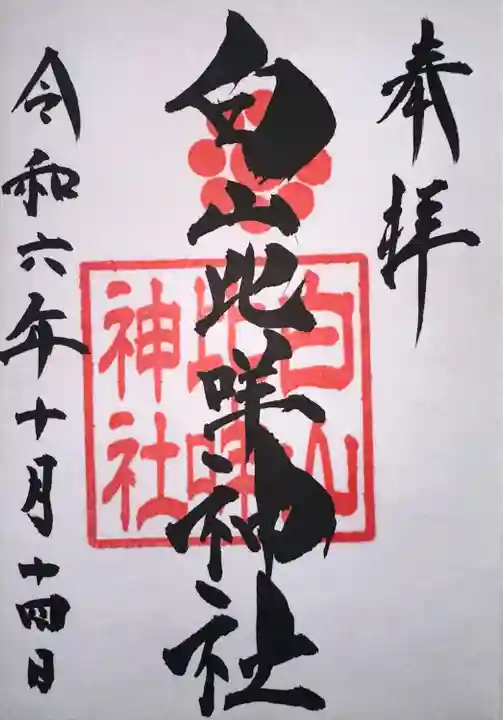 奉拝
白山比咲神社
白山
比咩
神社
令和六年十月十四日